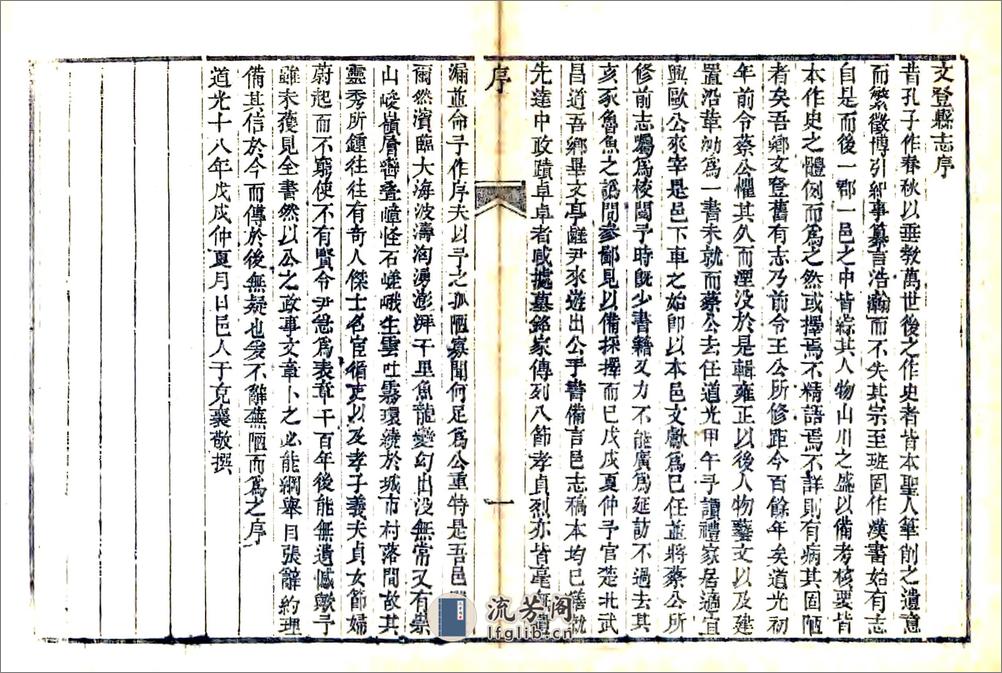 文登縣志序
昔孔子作春秋以垂教萬世後之作史者皆本聖人筆削之遺意
而繁徵博引紀事纂言浩瀚而不失其宗至班固作漢書始有志
自是而後一郡一邑之中皆綜其人物山川之盛以備考核要皆
本作史之體例而爲之然或擇焉不精語焉不詳則有病其固陋
者矣吾鄉文登舊有志乃前令王公所修距今百餘年矣道光初
年前令蔡公懼其久而湮没於是輯雍正以後人物藝文以及建
置沿革勒爲一書未就而蔡公去任道光甲午予讀禮家居適宜
興歐公來宰是邑下車之始卽以本邑文獻爲已任並將蔡公所
修前志囑爲校閱予時旣少書籍又力不能廣爲延訪不過去其
亥豕魯魚之譌間參鄙見以備採擇而已戊戌夏仲予官楚北武
昌道吾鄉畢文亭鹺尹來遊出公手書備言邑志稿本均已繕就
先達中政蹟卓卓者咸據墓銘家傳列入節孝貞烈亦皆毫無遺
序
一
漏並命予作序夫以予之孤陋寡聞何足爲公重特是吾邑
爾然濱臨大海波濤洶湧澎湃千里魚龍變幻出没無常又有崇
山峻嶺層巒叠嶂怪石嵯峨生雲吐霧環繞於城市村落間故其
靈秀所鍾往往有奇人傑士名宦循吏以及孝子義夫貞女節婦
蔚起而不窮使不有賢令尹急爲表章千百年後能無遺憾歟予
雖未獲見全書然以公之政事文章卜之必能綱舉目張辭約理
備其信於今而傳於後無疑也爰不辭蕪陋而爲之序
道光十八年戊戌仲夏月日邑人于克襄敬撰
流芳阁
lfglib.cn